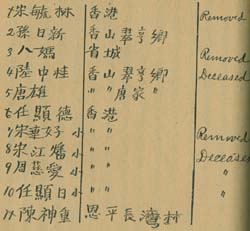 1 宋毓林 香港 Removed
2 孫日新 香山翠亨鄉
3 八媽 省城 Removed
4 陸中桂 香山翠亨鄉 Deceased
5 唐雄 〃 〃 唐家 〃
6 任顯德 香港
7 宋重好 小 〃 〃 Removed
8 宋江燔 小 〃 Deceased
9 周慈愛 小 〃 〃
10 任顯日 小 〃 〃
11 陳神重 恩平長灣村